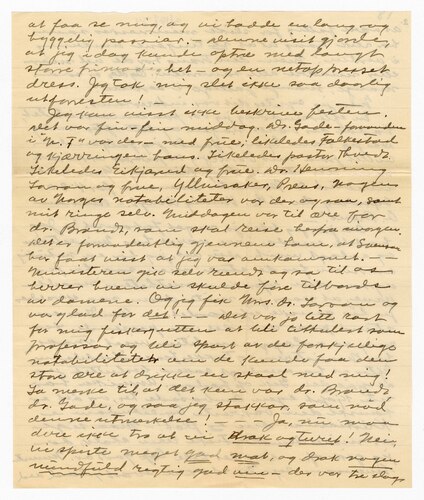 at faa se mig, og vi hadde en lang og
hyggelig passiar. Denne visit gjorde,
at jeg idag kunde optræ med langt
større frimodighet — og en netop presset
dress. Jeg tok mig slet ikke saa daarlig
ut forresten! —
Jeg kan visst ikke beskrive festen.
Det var fin-fin middag. Dr. Gade
i "N. T" var der — med frue, likeledes Falkestad
og kjærringen hans. Likeledes pastor
Likeledes og frue. Dr. Henning
Larson og frue, Ylvisaker, Preus,
av Norges notabiliteter var der og saa, samt
mit ringe selv. Middagen var til ære for
Dr. Brandt, som skal reise herfra imorgen.
Det er formodentlig gjennem ham, at
har faat visst at jeg var ankommet. —
Ministeren gik selv rundt og sa til os
herrer hvem vi skulde føre tilbords
av damene. Og jeg fik Mrs. Dr. Larson og
var glad for det! — Det var jo litt rart
for mig fiskergutten at bli titulert som
professor og bli spurt av de forskjellige
notabiliteter om de kunde faa den
store ære at drikke en skaal med mig!
La merke til, at det kun var Dr. Brandt
Dr. Gade, og saa jeg stakkar, som nød
denne utmerkelse! — — Ja, nu maa
dere ikke tro at vi drak og turet! Nei,
vi spiste meget god mat, og drak nogen
mundfuld rigtig god vin — der var tre slags